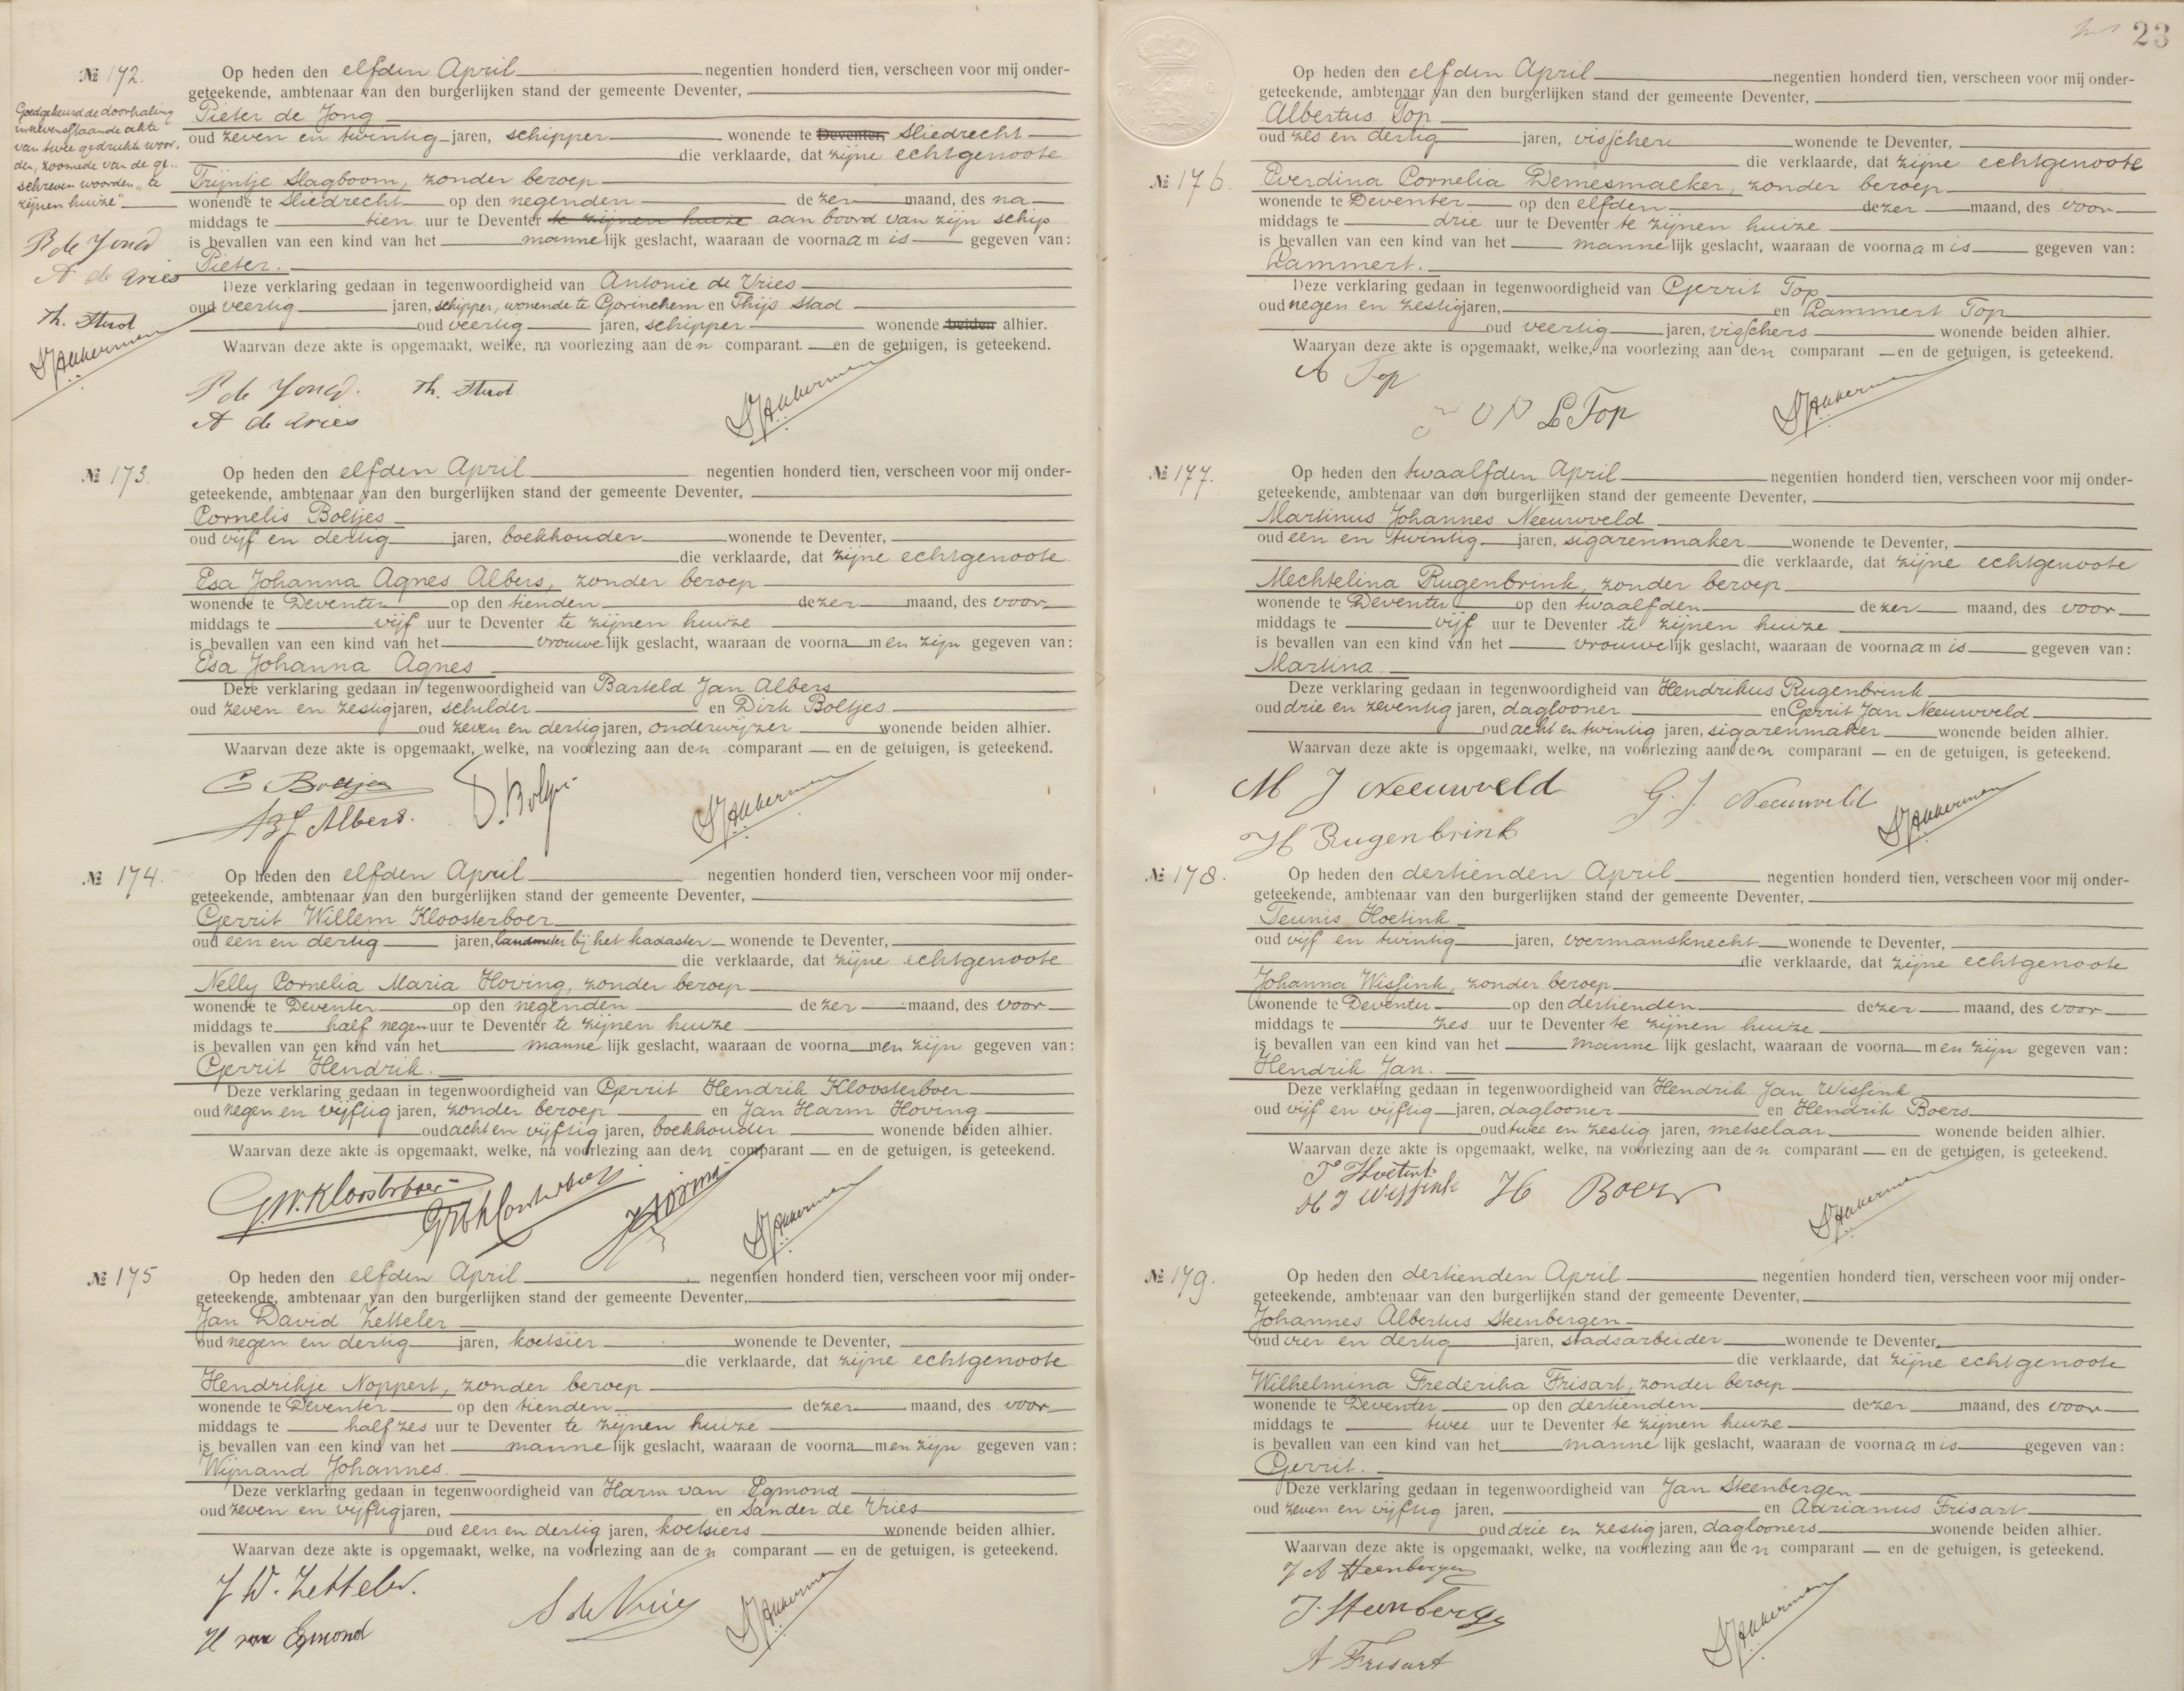 № 172.
Op heden den elfden April negentien honderd tien, verscheen voor mij onder-
geteekende, ambtenaar van den burgerlijken stand der gemeente Deventer,
Pieter de Jong
oud zeven en twintig jaren, schipper wonende te Deventer, Sliedrecht
die verklaarde, dat zijne echtgenoote
Trijntje Slagboom, zonder beroep
wonende te Sliedrecht op den negenden dezer maand, des na-
middags te tien uur te Deventer te zijnen huize aan boord van zijn schip
is bevallen van een kind van het mannelijk geslacht, waaraan de voornaam is gegeven van:
Pieter.
Deze verklaring gedaan in tegenwoordigheid van Antonie de Vries
oud veertig jaren, schipper, wonende te Gorinchem en Thijs Stad
oud veertig jaren, schipper wonende beiden alhier.
Waarvan deze akte is opgemaakt, welke, na voorlezing aan den comparant en de getuigen, is geteekend.
Goedgekeurd de doorhaling
in nevenstaande akte
van twee gedrukte woor-
den, zoomede van de ge-
schreven woorden „te
zijnen huize"
P de Jong
A de Vries
P de Jong.
A de Vries
№ 173.
Op heden den elfden April negentien honderd tien, verscheen voor mij onder-
geteekende, ambtenaar van den burgerlijken stand der gemeente Deventer,
Cornelis Boltjes
oud vijf en dertig jaren, boekhouder wonende te Deventer,
die verklaarde, dat zijne echtgenoote
Esa Johanna Agnes Albers, zonder beroep
wonende te Deventer op den tienden dezer maand, des voor-
middags te vijf uur te Deventer te zijnen huize
is bevallen van een kind van het vrouwelijk geslacht, waaraan de voornamen zijn gegeven van:
Esa Johanna Agnes
Deze verklaring gedaan in tegenwoordigheid van Barteld Jan Albers
oud zeven en zestig jaren, schilder en Dirk Boltjes
oud zeven en dertig jaren, onderwijzer wonende beiden alhier.
Waarvan deze akte is opgemaakt, welke, na voorlezing aan den comparant en de getuigen, is geteekend.
C Boltjes
D. Boltjes
BJ Albers.
№ 174.
Op heden den elfden April negentien honderd tien, verscheen voor mij onder-
geteekende, ambtenaar van den burgerlijken stand der gemeente Deventer,
Gerrit Willem Kloosterboer
oud een en dertig jaren, landmeter bij het kadaster wonende te Deventer,
die verklaarde, dat zijne echtgenoote
Nelly Cornelia Maria Hoving, zonder beroep
wonende te Deventer op den negenden dezer maand, des voor-
middags te half negen uur te Deventer te zijnen huize
is bevallen van een kind van het mannelijk geslacht, waaraan de voornamen zijn gegeven van:
Gerrit Hendrik.
Deze verklaring gedaan in tegenwoordigheid van Gerrit Hendrik Kloosterboer
oud negen en vijftig jaren, zonder beroep en Jan Harm Hoving
oud acht en vijftig jaren, boekhouder wonende beiden alhier.
Waarvan deze akte is opgemaakt, welke, na voorlezing aan den comparant en de getuigen, is geteekend.
G.W. Kloosterboer
GH Kloosterboer
JHHoving
№ 175
Op heden den elfden April negentien honderd tien, verscheen voor mij onder-
geteekende, ambtenaar van den burgerlijken stand der gemeente Deventer,
Jan David Zetteler
oud negen en dertig jaren, koetsier wonende te Deventer,
die verklaarde, dat zijne echtgenoote
Hendrikje Noppert, zonder beroep
wonende te Deventer op den tienden dezer maand, des voor-
middags te half zes uur te Deventer te zijnen huize
is bevallen van een kind van het mannelijk geslacht, waaraan de voornamen zijn gegeven van:
Wijnand Johannes.
Deze verklaring gedaan in tegenwoordigheid van Harm van Egmond
oud zeven en vijftig jaren, en Sander de Vries
oud een en dertig jaren, koetsiers wonende beiden alhier.
Waarvan deze akte is opgemaakt, welke, na voorlezing aan den comparant en de getuigen, is geteekend.
J D. Zetteler.
S de Vries
H van Egmond
23
№ 176.
Op heden den elfden April negentien honderd tien, verscheen voor mij onder-
geteekende, ambtenaar van den burgerlijken stand der gemeente Deventer,
Albertus Top
oud zes en dertig jaren, visscher wonende te Deventer,
die verklaarde, dat zijne echtgenoote
Everdina Cornelia Demesmaeker, zonder beroep
wonende te Deventer op den elfden dezer maand, des voor-
middags te drie uur te Deventer te zijnen huize
is bevallen van een kind van het mannelijk geslacht, waaraan de voornaam is gegeven van:
Lammert.
Deze verklaring gedaan in tegenwoordigheid van Gerrit Top
oud negen en zestig jaren, en Lammert Top
oud veertig jaren, visschers wonende beiden alhier.
Waarvan deze akte is opgemaakt, welke, na voorlezing aan den comparant en de getuigen, is geteekend.
A Top
L Top
№ 177.
Op heden den twaalfden April negentien honderd tien, verscheen voor mij onder-
geteekende, ambtenaar van den burgerlijken stand der gemeente Deventer,
Martinus Johannes Neeuwveld
oud een en twintig jaren, sigarenmaker wonende te Deventer,
die verklaarde, dat zijne echtgenoote
Mechtelina Rugenbrink, zonder beroep
wonende te Deventer op den twaalfden dezer maand, des voor-
middags te vijf uur te Deventer te zijnen huize
is bevallen van een kind van het vrouwelijk geslacht, waaraan de voornaam is gegeven van:
Martina.
Deze verklaring gedaan in tegenwoordigheid van Hendrikus Rugenbrink
oud drie en zeventig jaren, daglooner en Gerrit Jan Neeuwveld
oud acht en twintig jaren, sigarenmaker wonende beiden alhier.
Waarvan deze akte is opgemaakt, welke, na voorlezing aan den comparant en de getuigen, is geteekend.
M J Neeuwveld
G. J. Neeuwveld
H Rugenbrink
№ 178.
Op heden den dertienden April negentien honderd tien, verscheen voor mij onder-
geteekende, ambtenaar van den burgerlijken stand der gemeente Deventer,
Teunis Hoetink
oud vijf en twintig jaren, voermansknecht wonende te Deventer,
die verklaarde, dat zijne echtgenoote
Johanna Wissink, zonder beroep
wonende te Deventer op den dertienden dezer maand, des voor-
middags te zes uur te Deventer te zijnen huize
is bevallen van een kind van het mannelijk geslacht, waaraan de voornamen zijn gegeven van:
Hendrik Jan.
Deze verklaring gedaan in tegenwoordigheid van Hendrik Jan Wissink
oud vijf en vijftig jaren, daglooner en Hendrik Boers
oud twee en zestig jaren, metselaar wonende beiden alhier.
Waarvan deze akte is opgemaakt, welke, na voorlezing aan den comparant en de getuigen, is geteekend.
T Hoetink
H J Wissink
H Boers
№ 179.
Op heden den dertienden April negentien honderd tien, verscheen voor mij onder-
geteekende, ambtenaar van den burgerlijken stand der gemeente Deventer,
Johannes Albertus Steenbergen
oud vier en dertig jaren, stadsarbeider wonende te Deventer,
die verklaarde, dat zijne echtgenoote
Wilhelmina Frederika Frisart, zonder beroep
wonende te Deventer op den dertienden dezer maand, des voor-
middags te twee uur te Deventer te zijnen huize
is bevallen van een kind van het mannelijk geslacht, waaraan de voornaam is gegeven van:
Gerrit.
Deze verklaring gedaan in tegenwoordigheid van Jan Steenbergen
oud zeven en vijftig jaren, en Adrianus Frisart
oud drie en zestig jaren, daglooners wonende beiden alhier.
Waarvan deze akte is opgemaakt, welke, na voorlezing aan den comparant en de getuigen, is geteekend.
J A Steenbergen
J. Steenbergen
A Frisart